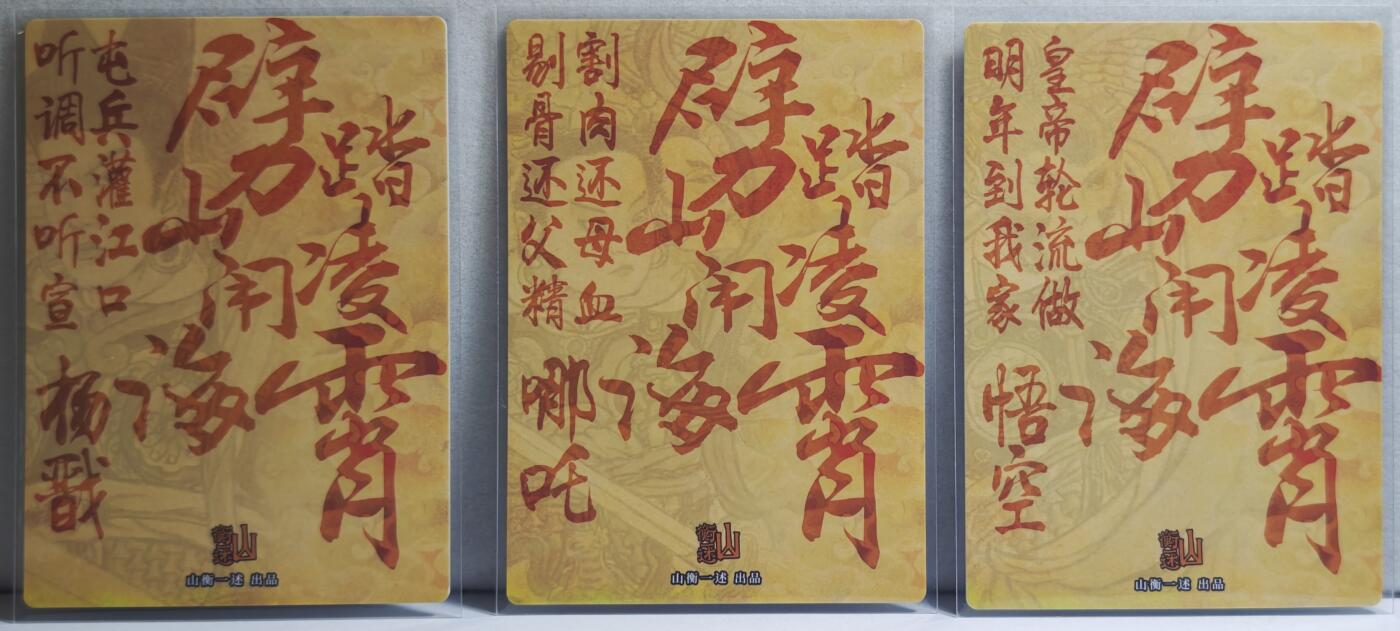 踏凌霄
劈山闹海
屯兵灌江口
听调不听宣
杨戬
山衡述
山衡一述 出品
踏凌霄
劈山闹海
割肉还母血
剔骨还父精
哪吒
山衡述
山衡一述 出品
踏凌霄
劈山闹海
皇帝轮流做
明年到我家
悟空
山衡述
山衡一述 出品